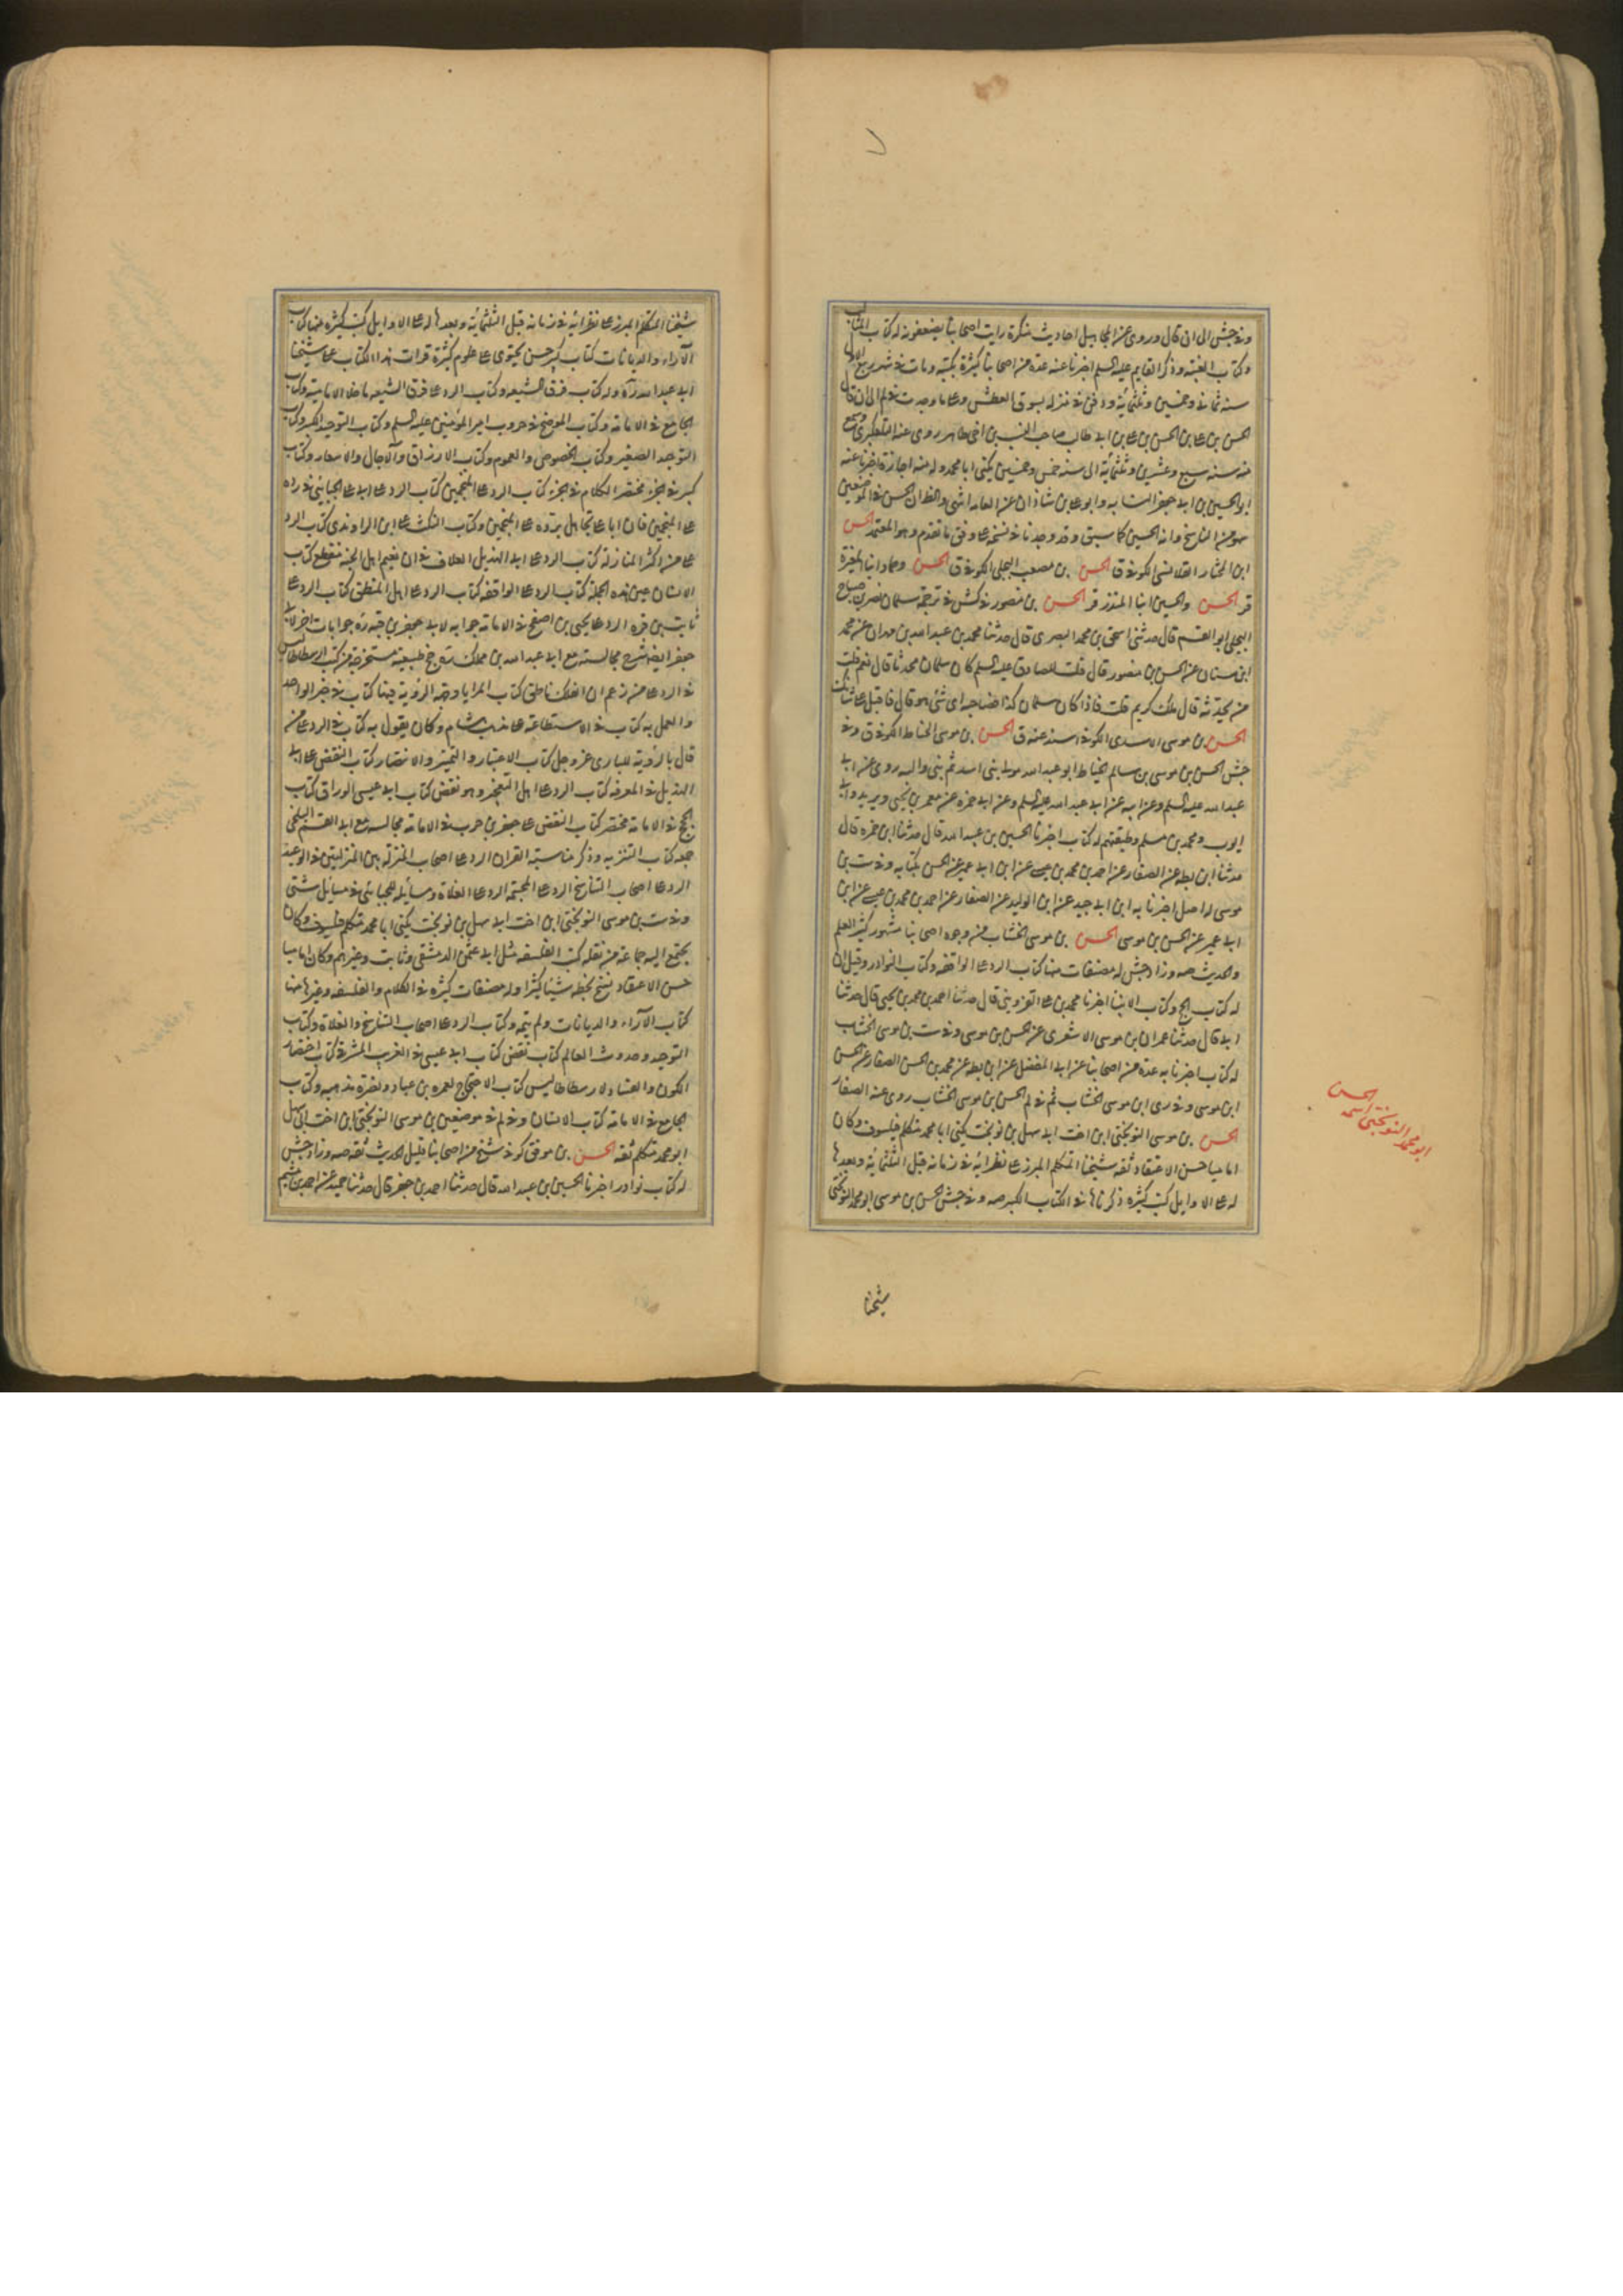 وفي جش الى ان قال وروى عن المجاهيل احاديث منكرة رايت اصحابنا يضعفونه له كتاب المثالب
وكتاب الغيبة وذكر القايم عليه السلم اخبرنا عنه عدة من اصحابنا كثيرة بكتبه ومات في شهر ربيع الاول
سنة ثمان وخمسين وثلثمائة ودفن في منزله بسوق العطش وعلى ما وجدت في لم الى ان قال
الحسن بن علي بن الحسن بن علي بن ابي طالب صاحب النسب ابن اخي طاهر روى عنه التلعكبري وسمع
منه سنة سبع وعشرين وثلثمائة الى سنة خمس وخمسين يكنى ابا محمد وله منه اجازة اخبرنا عنه
ابو الحسين بن ابي جعفر النسابه وابو علي بن شاذان عن العامه انتهى والظ ان الحسن في الموضعين
سهو من الناسخ وانه الحسين كما سبق وقد وجدنا في نسخة على وفق ما تقدم وهو المعتمد الحسن
ابن المختار القلانسي الكوفي ق الحسن بن مصعب البجلي الكوفي ق الحسن وحماد ابنا المغيرة
قر الحسن والحسين ابنا المنذر قر الحسن بن منصور في كش في ترجمة سلمان نصر بن صباح
البجلي ابو القسم قال حدثني اسحق بن محمد البصري قال حدثنا محمد بن عبد الله بن مهران عن محمد
ابن سنان عن الحسن بن منصور قال قلت للصادق عليه السلم كان سلمان محدثا قال نعم قلت
من يحدثه قال ملك كريم قلت فاذا كان سلمان كذا فصاحبه اي شئ هو قال اقبل على شانك
الحسن بن موسى الاسدي الكوفي اسند عنه ق الحسن بن موسى الحناط الكوفي ق وفي
جش الحسن بن موسى بن سالم الخياط ابو عبد الله مولى بني اسد ثم بني والبه روى عن ابي
عبد الله عليه السلم وعن ابيه عن ابي عبد الله عليه السلم وعن ابي حمزه عن معمر بن يحيى وبريد وابي
ايوب ومحمد بن مسلم وطبقتهم له كتاب اخبرنا الحسين بن عبيد الله قال حدثنا ابن حمزه قال
حدثنا ابن بطه عن الصفار عن احمد بن محمد بن عيسى عن ابن ابي عمير عن الحسن بكتابه وفي ست بن
موسى له اصل اخبرنا به ابن ابي جيد عن ابن الوليد عن الصفار عن احمد بن محمد بن عيسى عن ابن
ابي عمير عن الحسن بن موسى الحسن بن موسى الخشاب من وجوه اصحابنا مشهور كثير العلم
والحديث صه وزاد جش له مصنفات منها كتاب الرد على الواقفه وكتاب النوادر وقيل ان
له كتاب الحج وكتاب الانبيا اخبرنا محمد بن علي القزويني قال حدثنا احمد بن محمد بن يحيى قال حدثنا
ابي قال حدثنا عمران بن موسى الاشعري عن الحسن بن موسى وفي ست بن موسى الخشاب
له كتاب اخبرنا به عدة من اصحابنا عن ابي المفضل عن ابن بطه عن محمد بن الحسن الصفار عن الحسن
ابن موسى وفي ري ابن موسى الخشاب ثم في لم الحسن بن موسى الخشاب روى عنه الصفار
الحسن بن موسى النوبختي ابن اخت ابي سهل بن نوبخت يكنى ابا محمد متكلم فيلسوف وكان
اماميا حسن الاعتقاد ثقة شيخنا المتكلم المبرز على نظرائه في زمانه قبل الثلثمائة وبعدها
له على الاوايل كتب كثيره ذكرناها في الكتاب الكبير صه وفي جش الحسن بن موسى ابو محمد النوبختي
شيخنا
ابو محمد النوبختي اسمه
الحسن
شيخنا المتكلم المبرز على نظرائه في زمانه قبل الثلثمائة وبعدها له على الاوايل كتب كثيره منها كتاب
الآراء والديانات كتاب كبير حسن يحتوى على علوم كثيرة قرات هذا الكتاب على شيخنا
ابي عبد الله ره وله كتاب فرق الشيعه وكتاب الرد على فرق الشيعه ما خلا الامامية وكتاب
الجامع في الامامة وكتاب الموضح في حروب امير المؤمنين عليه السلم وكتاب التوحيد الكبير وكتاب
التوحيد الصغير وكتاب الخصوص والعموم وكتاب الارزاق والآجال والاسعار وكتاب
كبير في الجزء مختصر الكلام في الجزء كتاب الرد على المنجمين كتاب الرد على ابي علي الجبائي في رده
على المنجمين فان ابا علي تجاهل برده على المنجمين وكتاب النكت على ابن الراوندي كتاب الرد
على من اكثر المنازلة كتاب الرد على ابي الهذيل العلاف في ان نعيم اهل الجنة منقطع كتاب
الانسان غير هذه الجملة كتاب الرد على الواقفه كتاب الرد على اهل المنطق كتاب الرد على
ثابت بن قره الرد على يحيى بن اصفح في الامامة جوابه لابي جعفر بن قبه ره جوابات اخر لابي
جعفر ايضا شرح مجالسته مع ابي عبد الله بن مملك حجج طبيعية مستخرجة من كتب ارسطاطاليس
في الرد على من زعم ان الفلك ناطق كتاب المرايا وجهة الرؤية فيها كتاب في خبر الواحد
والعمل به كتاب في الاستطاعة على مذهب هشام وكان يقول به كتاب في الرد على من
قال بالرؤية للباري عز وجل كتاب الاعتبار والتمييز والانتصار كتاب النقض على ابي
الهذيل في المعرفه كتاب الرد على اهل التعجيز وهو نقض كتاب ابي عيسى الوراق كتاب
الحجج في الامامة مختصر كتاب النقض على جعفر بن حرب في الامامة مجالسه مع ابي القسم البلخي
جمعه كتاب التنزيه وذكر متشابه القران الرد على اصحاب المنزلة بين المنزلتين في الوعيد
الرد على اصحاب التناسخ الرد على المجسمة الرد على الغلاة ومسائله للجبائي في مسايل شتى
وفي ست بن موسى النوبختي ابن اخت ابي سهل بن نوبخت يكنى ابا محمد متكلم فيلسوف وكان
يجتمع اليه جماعة من نقله كتب الفلسفه مثل ابي عثمن الدمشقي وثابت وغيرهم وكان اماميا
حسن الاعتقاد نسخ بخطه شيئا كثيرا وله مصنفات كثيره في الكلام والفلسفه وغيرها منها
كتاب الآراء والديانات ولم يتمه وكتاب الرد على اصحاب التناسخ والغلاة وكتاب
التوحيد وحدوث العالم كتاب نقض كتاب ابي عيسى في الغريب المشرقي كتاب اختصار
الكون والفساد لارسطاطاليس كتاب الاحتجاج لعمر بن عباد ونصرة مذهبه وكتاب
الجامع في الامامة كتاب الانسان وفي لم في موضعين بن موسى النوبختي ابن اخت ابي سهل
ابو محمد متكلم ثقه الحسن بن موفق كوفي شيخ من اصحابنا قليل الحديث ثقه صه وزاد جش
له كتاب نوادر اخبرنا الحسين بن عبيد الله قال حدثنا احمد بن جعفر قال حدثنا حميد عن احمد بن ميثم